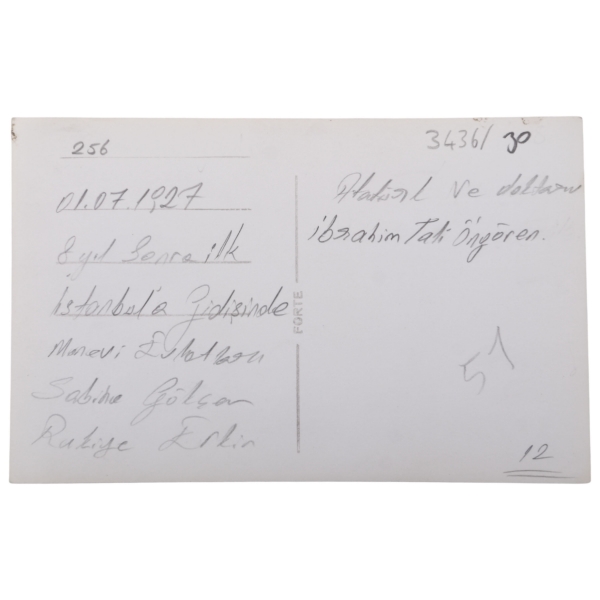 256
01.07.1927
8 yıl Sonra ilk
İstanbul'a Gidişinde
Manevi Evlatları
Sabiha Gökçen
Rukiye Erkin
FORTE
3436/ 30
Atatürk ve doktoru
İbrahim Tali Öngören.
51
12